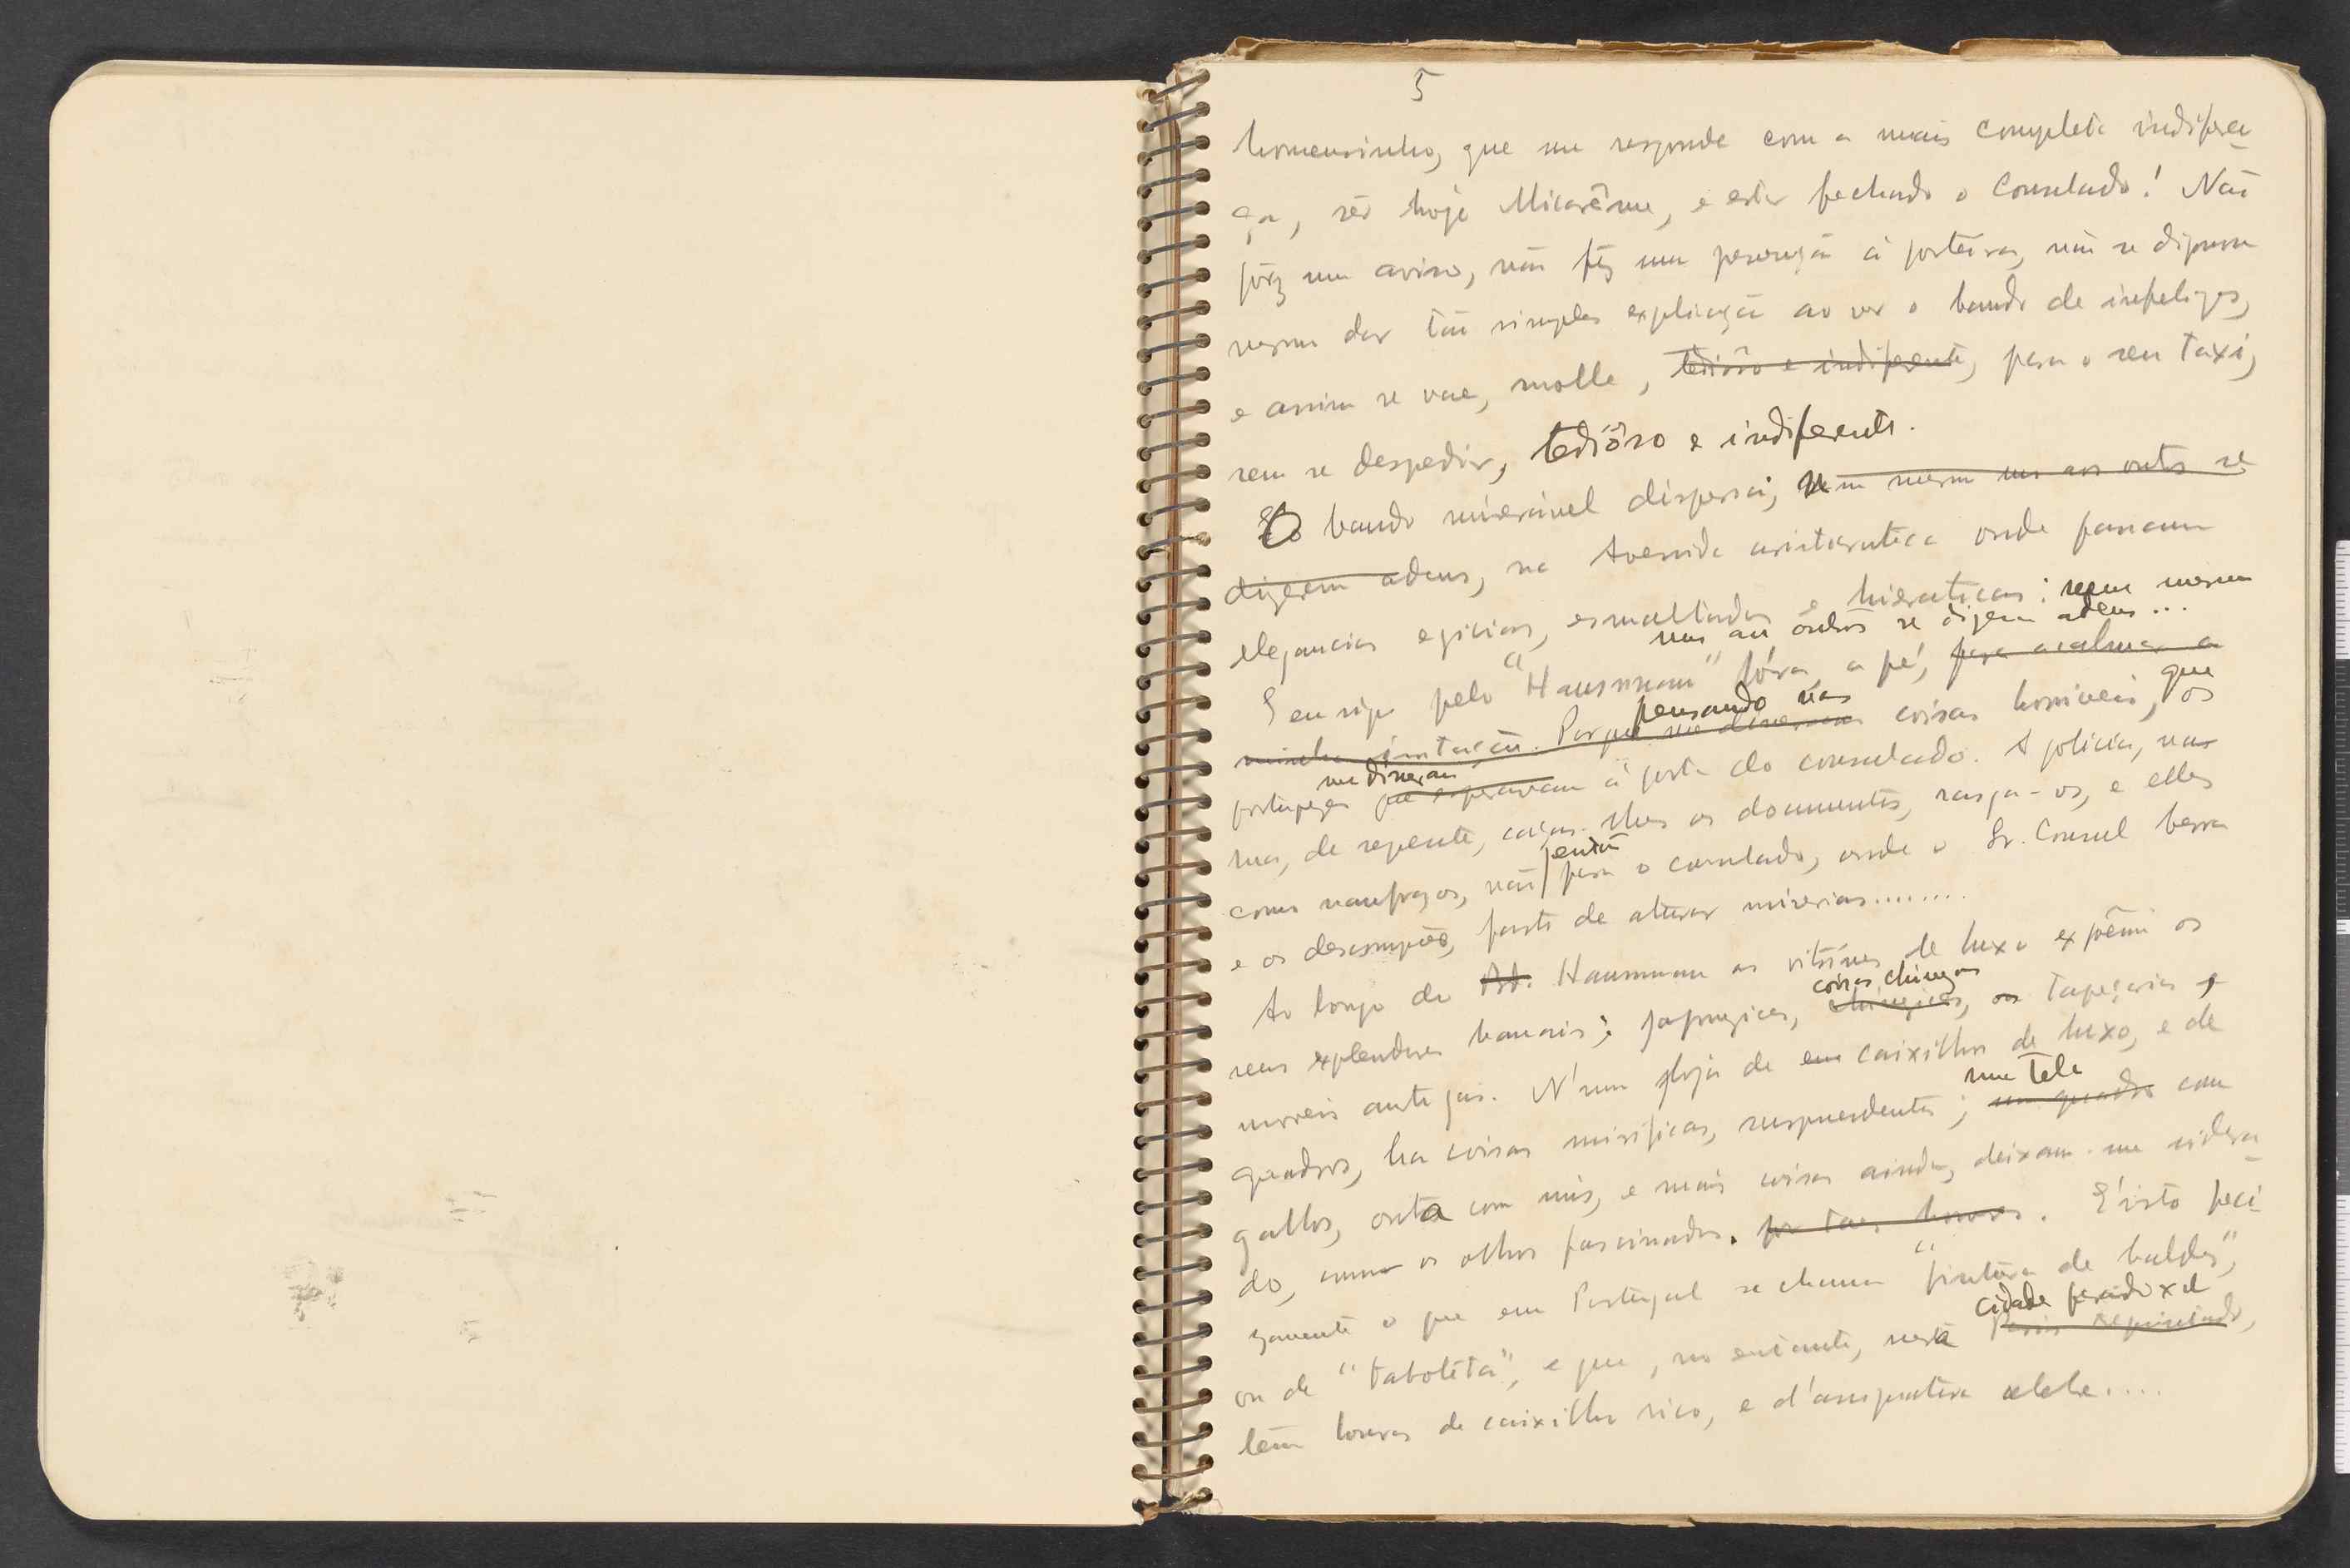 5
homensinho, que me responde com a mais completa indiferen
ça, sêr hoje Micarême, e estar fechado o Consulado! Não
pôz um aviso, não fez uma prevenção á porteira, não se dignou
mesmo dar tão simples explicação ao ver o bando de infelizes,
e assim se vae, molle, tediôso e indiferente, para o seu taxi,
sem se despedir, tediôso e indiferente.
O bando miseravel dispersa, nem mesmo uns aos outros se
dizem adeus, na Avenida aristocratica onde passam
elegancias egicias, esmaltadas e hieraticas: nem mesmo
uns aos outros se dizem adeus...
E eu sigo pelo "Hausmann" fóra, a pé, para acalmar a
minha irritação. Porque me disseram coisas horriveis, que os
pensando nas
portuguezes que esperavam á porta do consulado. A policia, nas
me disseram
ruas, de repente, caça-lhes os documentos, rasga-os, e elles
como naufragos, vão para o consulado, onde o Sr. Consul berra
então
e os descompõe, farto de aturar miserias........
Ao longo do Bd. Hausmann as vitrines de luxo expõem os
seus explendores banais; japonezices, chinezices, as tapeçarias e
coisas chinezas
moveis antigos. N'uma loja de em caixilhos de luxo, e de
quadros, ha coisas mirificas, surpreendentes; um quadro com
uma tela
gallos, outra com nús, e mais coisas ainda, deixam-me sidera
do, com os olhos fascinados. por taes horrores. E' isto preci
zamente o que em Portugal se chama "pintura de baldes",
ou de "taboleta", e que, no entanto, nesta Paris requintado,
cidade paradoxal
têm honras de caixilho rico, e d'assignatura celebre....